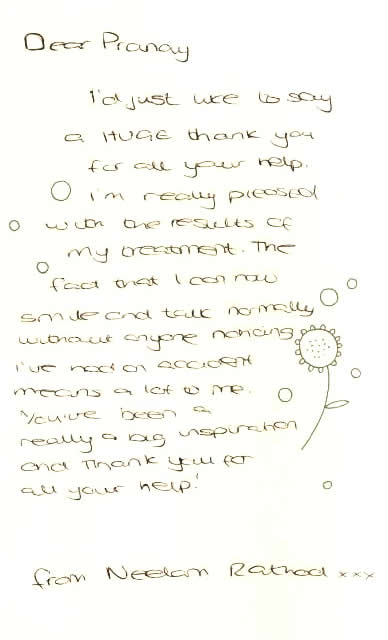 Dear Pranay
I'd just like to say
a HUGE thank you
for all your help.
I'm really pleased
with the results of
my treatment. The
fact that I can now
smile and talk normally
without anyone noticing
I've had an accident
means a lot to me.
You've been a
really a big inspiration
and Thank you for
all your help!
from Neelam Rathod xxx